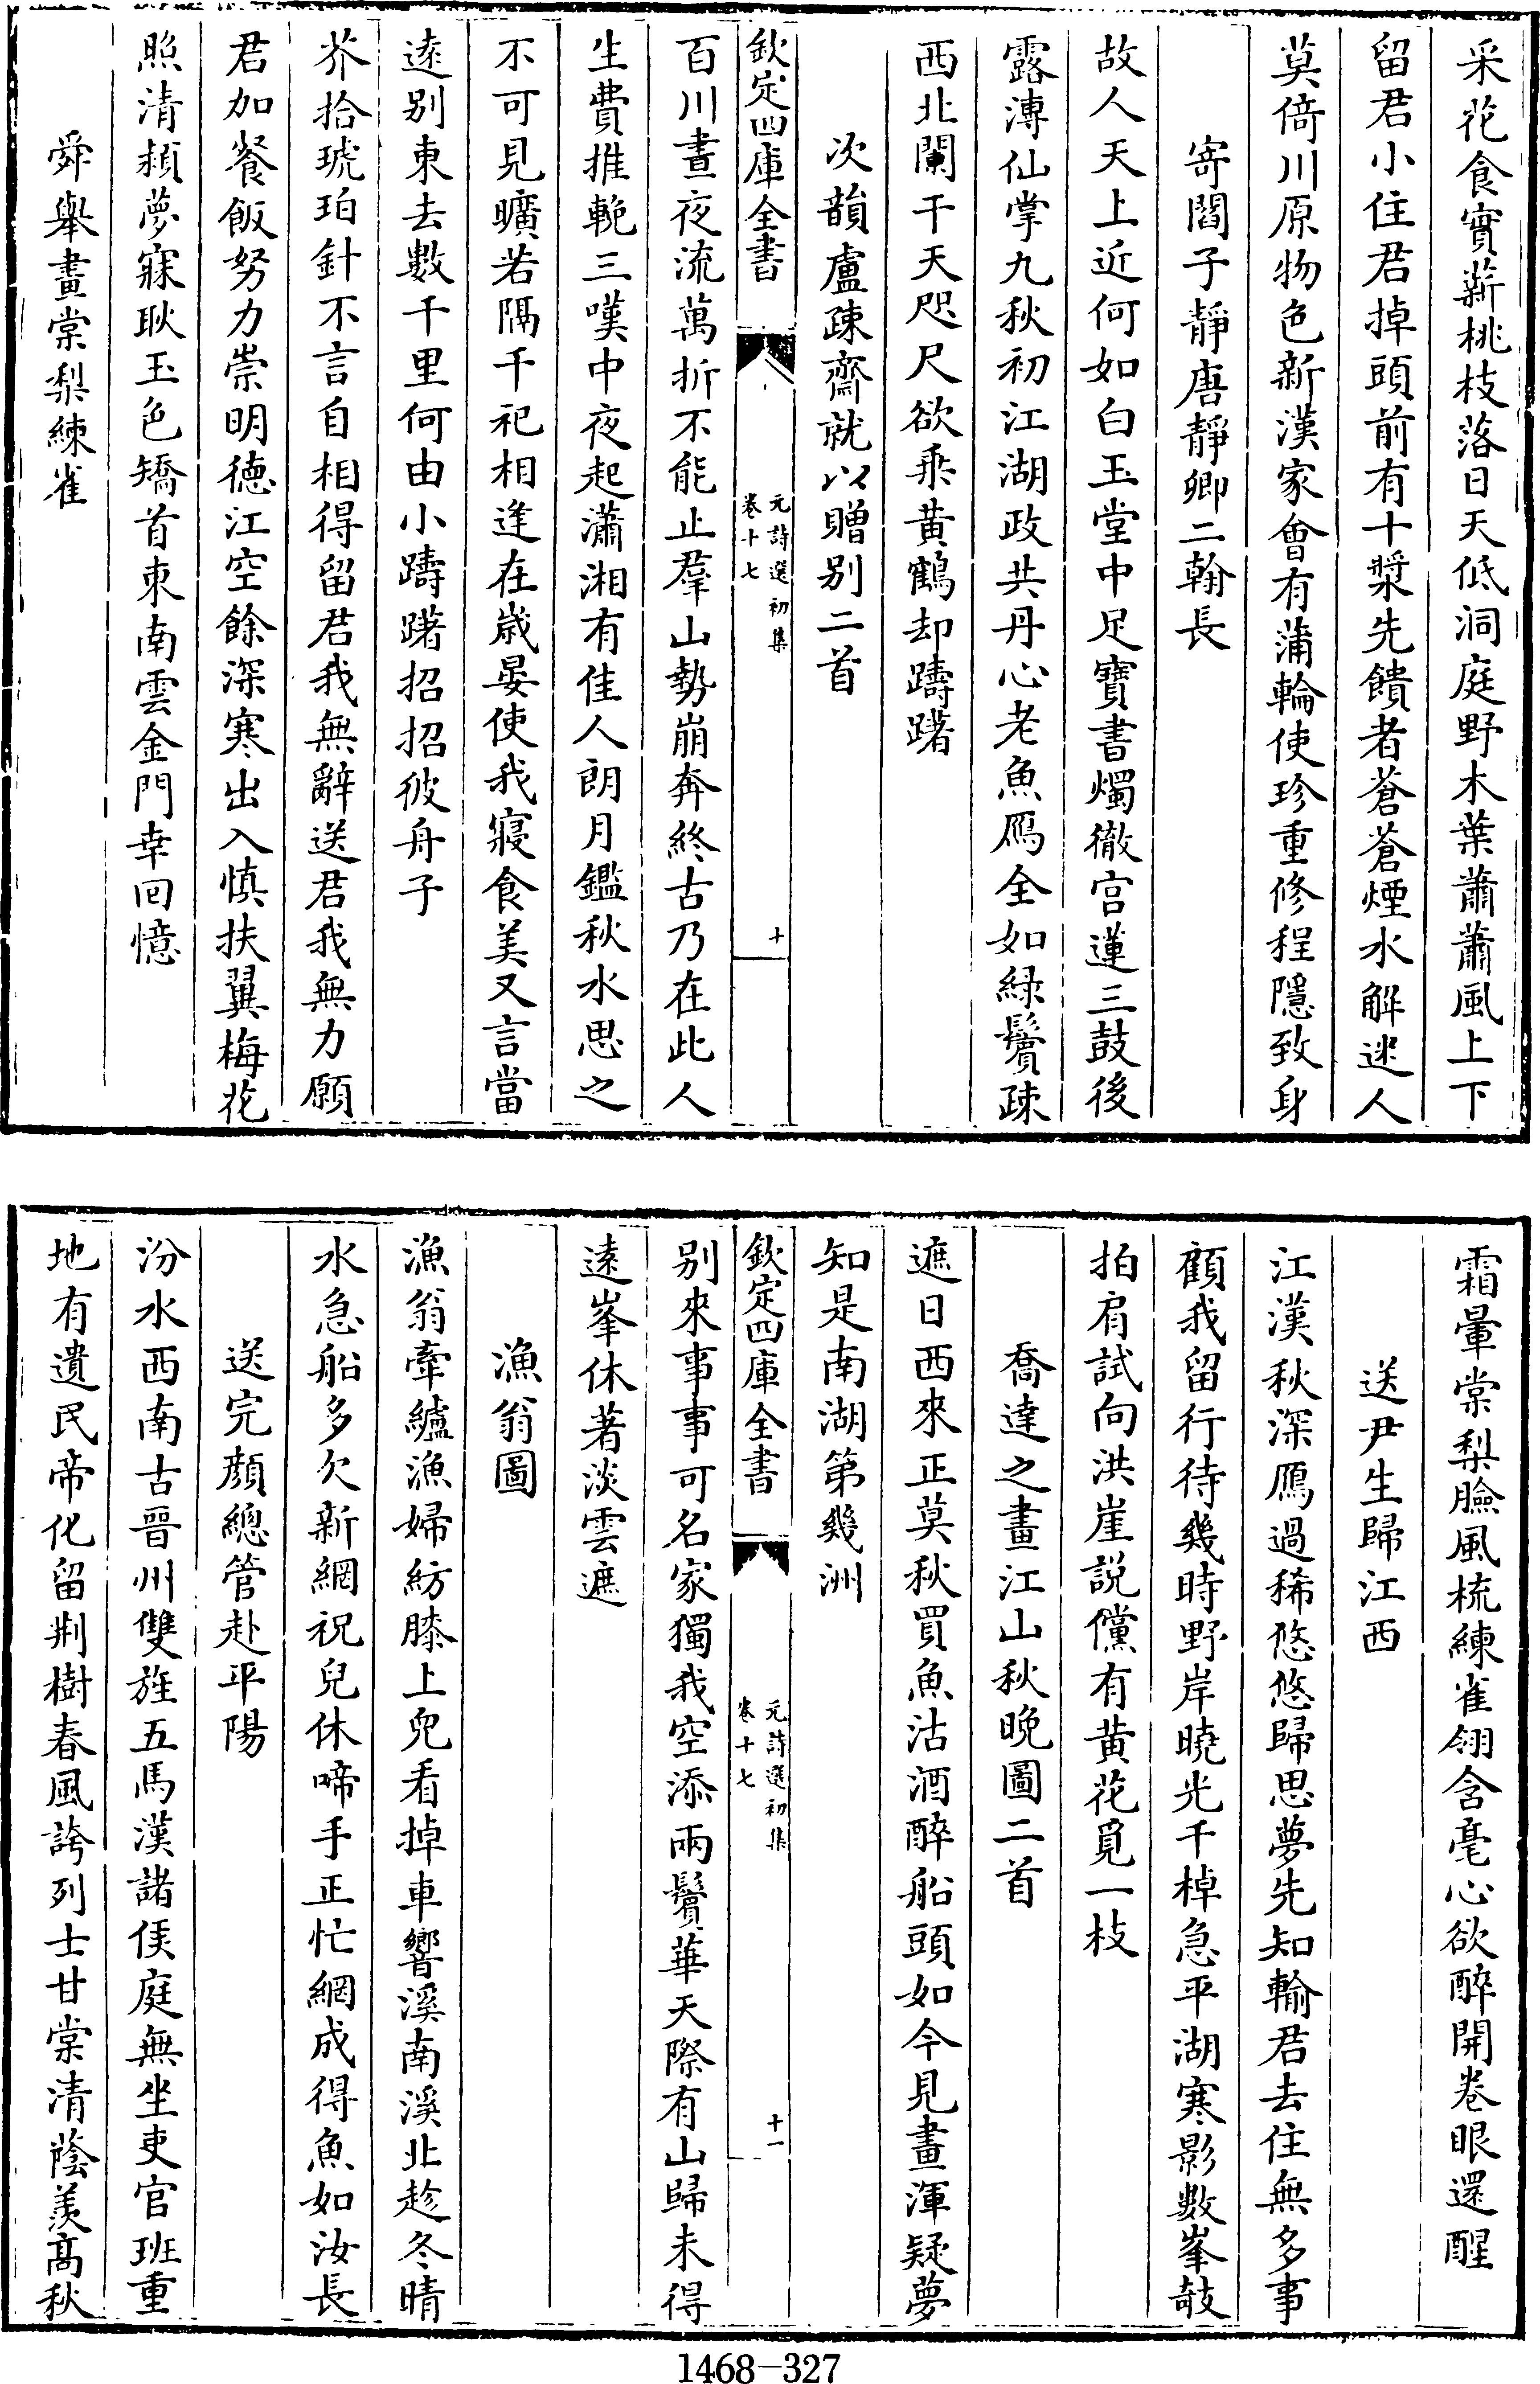 采花食實薪桃枝落日天低洞庭野木葉蕭蕭風上下
留君小住君掉頭前有十漿先饋者蒼蒼煙水解迷人
莫倚川原物色新漢家會有蒲輪使珍重修程隱致身
寄閻子靜唐靜卿二翰長
故人天上近何如白玉堂中足寶書燭徹宫蓮三鼓後
露漙仙掌九秋初江湖政共丹心老魚鴈全如緑鬢疎
西北闌干天咫尺欲乘黄鶴却躊躇
次韻盧疎齋就以贈别二首
欽定四庫全書
元詩選初集
卷十七
十
百川晝夜流萬折不能止羣山勢崩奔終古乃在此人
生費推輓三嘆中夜起瀟湘有佳人朗月鑑秋水思之
不可見曠若隔千祀相逢在歲晏使我寢食美又言當
逺别東去數千里何由小躊躇招招彼舟子
芥拾琥珀針不言自相得留君我無辭送君我無力願
君加餐飯努力崇明德江空餘深寒出入慎扶翼梅花
照清潁夢寐耿玉色矯首東南雲金門幸回憶
舜舉畫棠梨練雀
霜暈棠梨臉風梳練雀翎含毫心欲醉開卷眼還醒
送尹生歸江西
江漢秋深鴈過稀悠悠歸思夢先知輸君去住無多事
顧我留行待幾時野岸曉光千棹急平湖寒影數峯攲
拍肩試向洪崖説儻有黄花覓一枝
喬達之畫江山秋晩圖二首
遮日西來正莫秋買魚沽酒醉船頭如今見畫渾疑夢
知是南湖第幾洲
欽定四庫全書
元詩選初集
卷十七
十一
别來事事可名家獨我空添兩鬢華天際有山歸未得
逺峯休著淡雲遮
漁翁圖
漁翁牽纑漁婦紡膝上兒看掉車響溪南溪北趁冬晴
水急船多欠新網祝兒休啼手正忙網成得魚如汝長
送完顔總管赴平陽
汾水西南古晉州雙旌五馬漢諸侯庭無坐吏官班重
地有遺民帝化留荆樹春風誇列士甘棠清蔭羨髙秋
1468-327